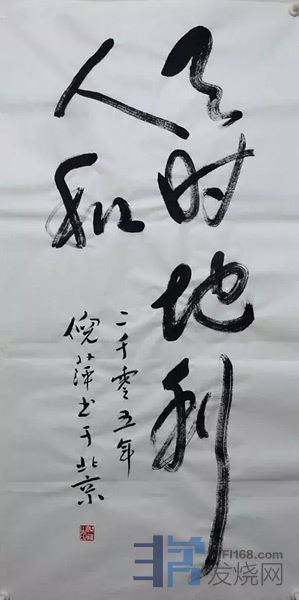 天时地利
人和
二千零五年
倪萍书于北京
HIFI168.com
发烧网